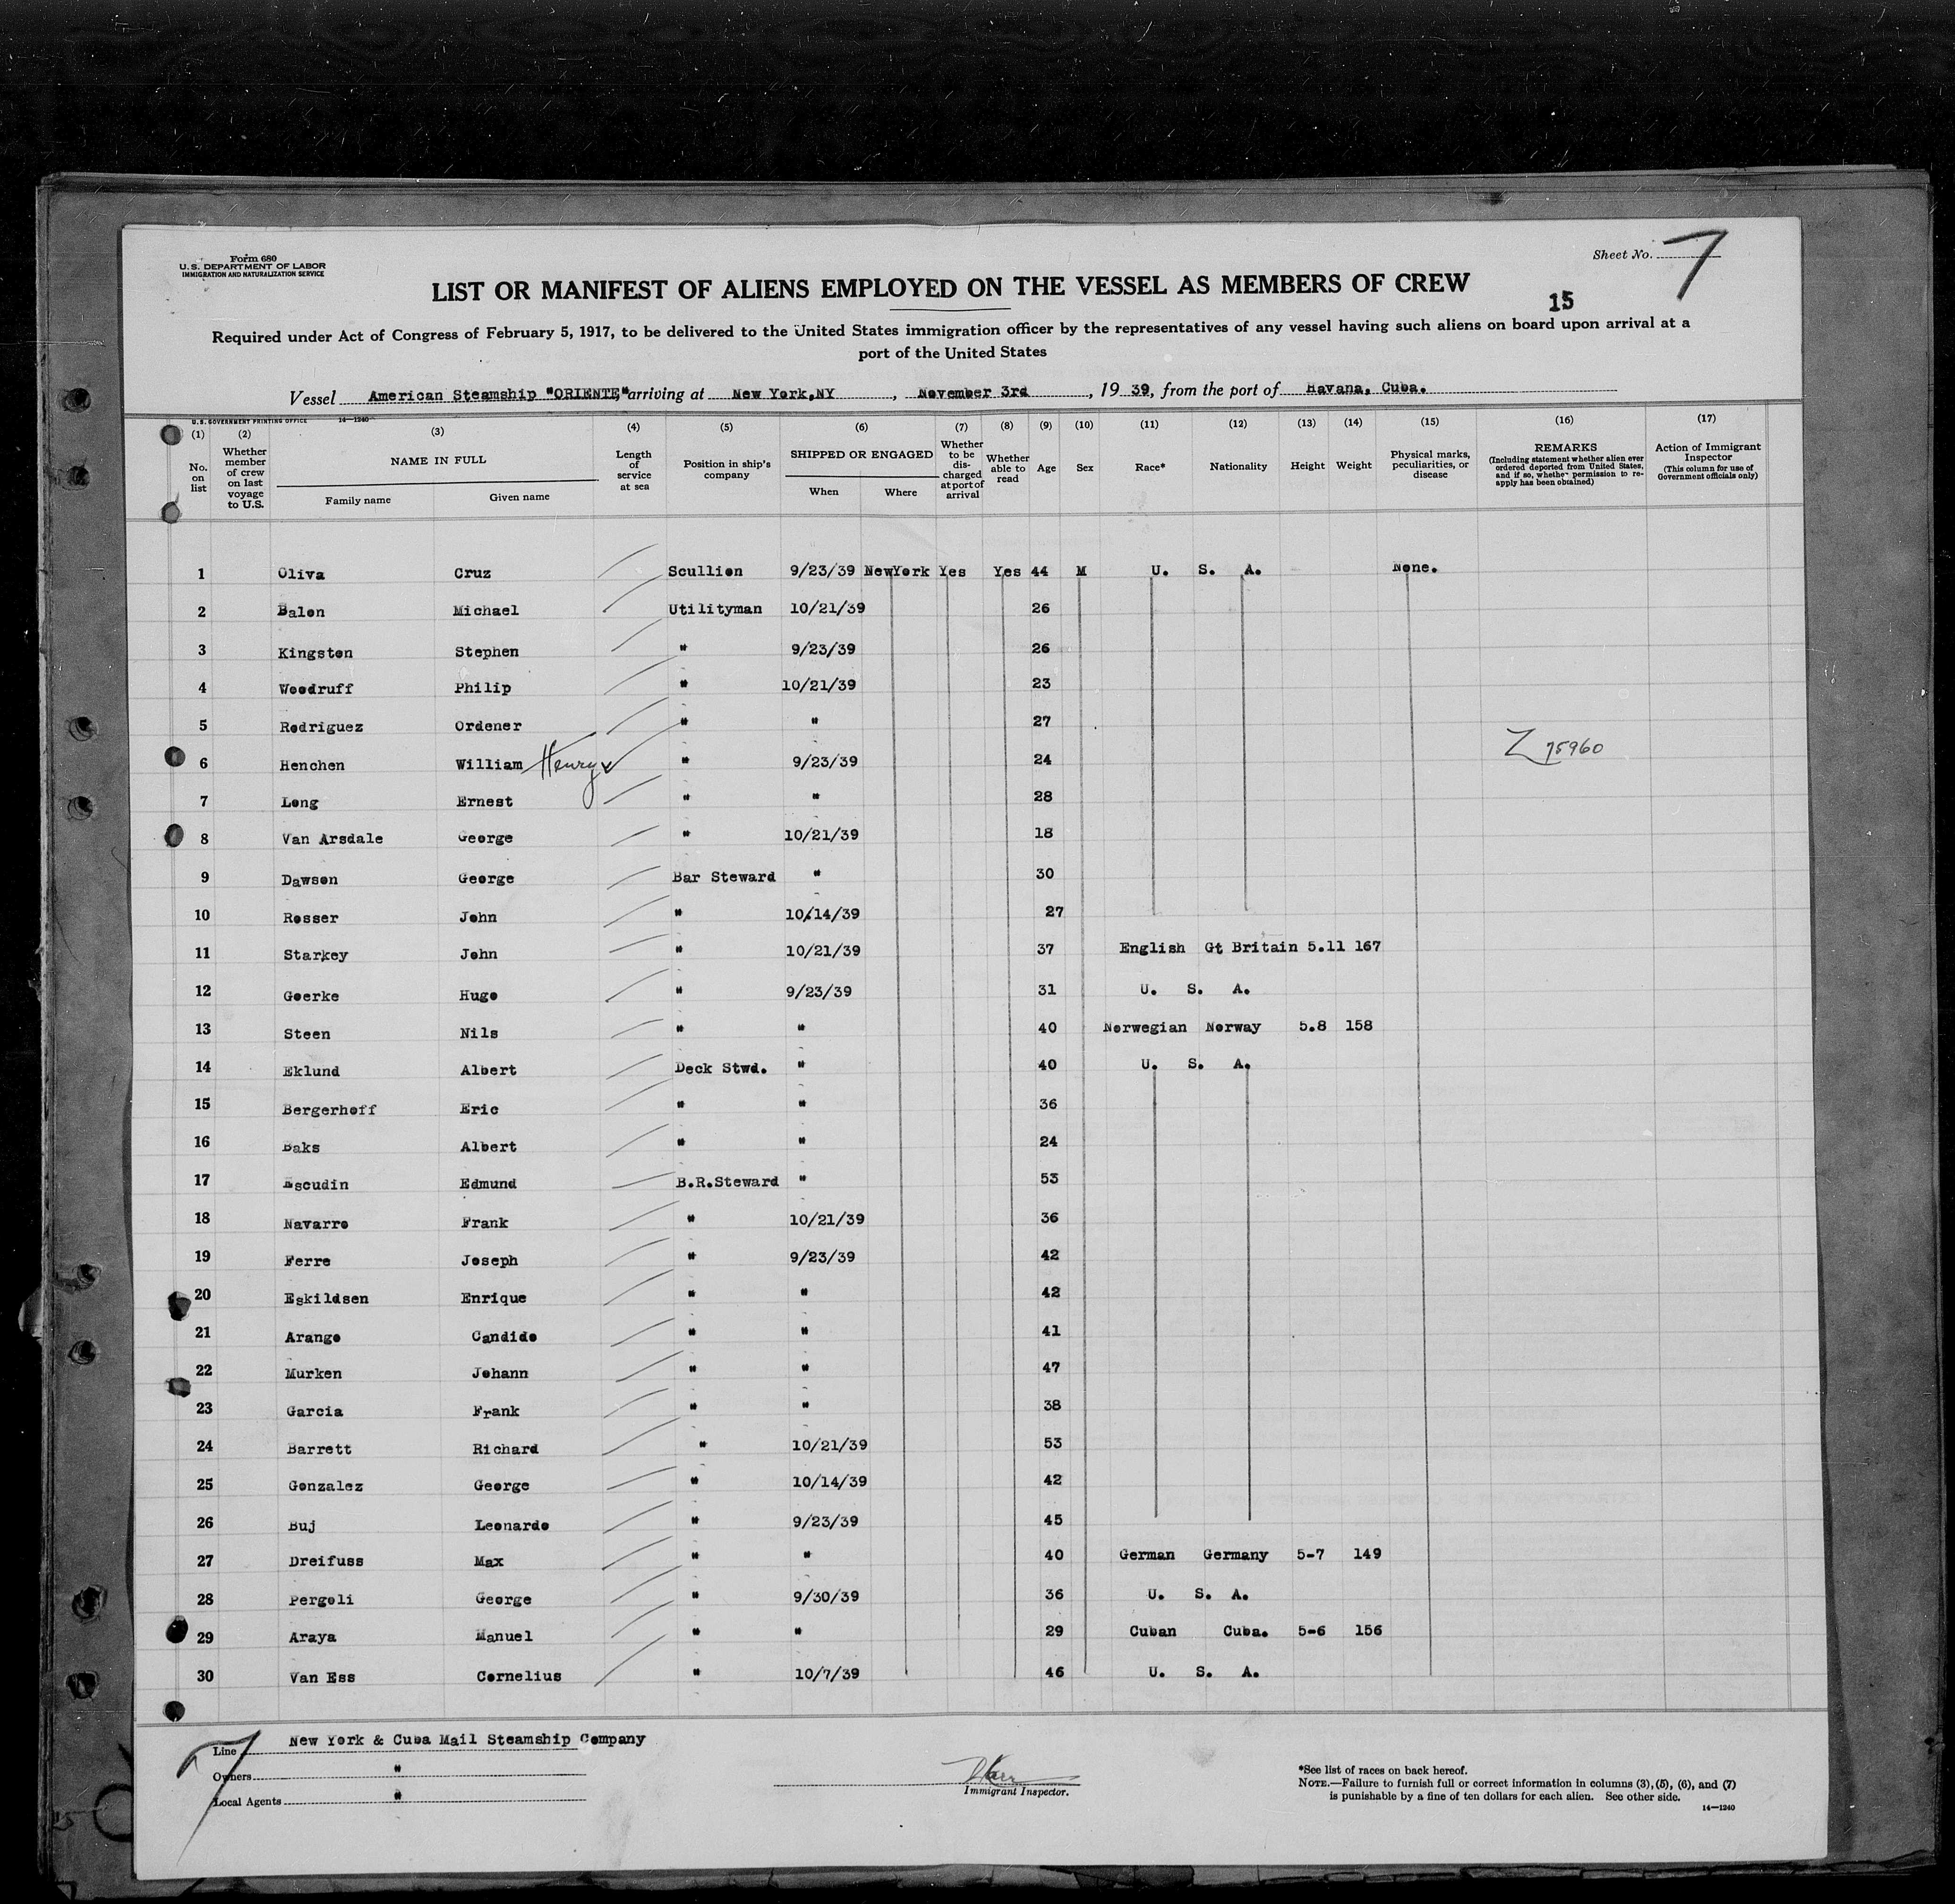 Form 680
U. S. DEPARTMENT OF LABOR
IMMIGRATION AND NATURALIZATION SERVICE
Sheet No. 7
LIST OR MANIFEST OF ALIENS EMPLOYED ON THE VESSEL AS MEMBERS OF CREW
15
Required under Act of Congress of February 5, 1917, to be delivered to the United States immigration officer by the representatives of any vessel having such aliens on board upon arrival at a
port of the United States
Vessel American Steamship "ORIENTE", arriving at New York,NY, November 3rd, 1939, from the port of Havana, Cuba.
U. S. GOVERNMENT PRINTING OFFICE 14—1240
(1) No. on list
(2) Whether member of crew on last voyage to U.S.
(3) NAME IN FULL Family name Given name
(4) Length of service at sea
(5) Position in ship's company
(6) SHIPPED OR ENGAGED When Where
(7) Whether to be discharged at port of arrival
(8) Whether able to read
(9) Age
(10) Sex
(11) Race*
(12) Nationality
(13) Height
(14) Weight
(15) Physical marks, peculiarities, or disease
(16) REMARKS (Including statement whether alien ever ordered deported from United States, and if so, whether permission to reapply has been obtained)
(17) Action of Immigrant Inspector (This column for use of Government officials only)
1 Oliva Cruz Scullion 9/23/39 NewYork Yes Yes 44 M U. S. A. None.
2 Balon Michael Utilityman 10/21/39 26
3 Kingston Stephen " 9/23/39 26
4 Woodruff Philip " 10/21/39 23
5 Rodriguez Ordener " " 27
6 Henchen William Henry " 9/23/39 24 Z 75960
7 Long Ernest " " 28
8 Van Arsdale George " 10/21/39 18
9 Dawson George Bar Steward " 30
10 Rosser John " 10/14/39 27
11 Starkey John " 10/21/39 37 English Gt Britain 5.11 167
12 Goerke Hugo " 9/23/39 31 U. S. A.
13 Steen Nils " " 40 Norwegian Norway 5.8 158
14 Eklund Albert Deck Stwd. " 40 U. S. A.
15 Bergerhoff Eric " " 36
16 Baks Albert " " 24
17 Escudin Edmund B.R.Steward " 53
18 Navarro Frank " 10/21/39 36
19 Ferre Joseph " 9/23/39 42
20 Eskildsen Enrique " " 42
21 Arango Candido " " 41
22 Murken Johann " " 47
23 Garcia Frank " " 38
24 Barrett Richard " 10/21/39 53
25 Gonzalez George " 10/14/39 42
26 Buj Leonardo " 9/23/39 45
27 Dreifuss Max " " 40 German Germany 5-7 149
28 Pergoli George " 9/30/39 36 U. S. A.
29 Araya Manuel " " 29 Cuban Cuba. 5-6 156
30 Van Ess Cornelius " 10/7/39 46 U. S. A.
7
Line New York & Cuba Mail Steamship Company
Owners "
Local Agents "
Immigrant Inspector.
*See list of races on back hereof.
NOTE.—Failure to furnish full or correct information in columns (3), (5), (6), and (7)
is punishable by a fine of ten dollars for each alien. See other side.
14—1240